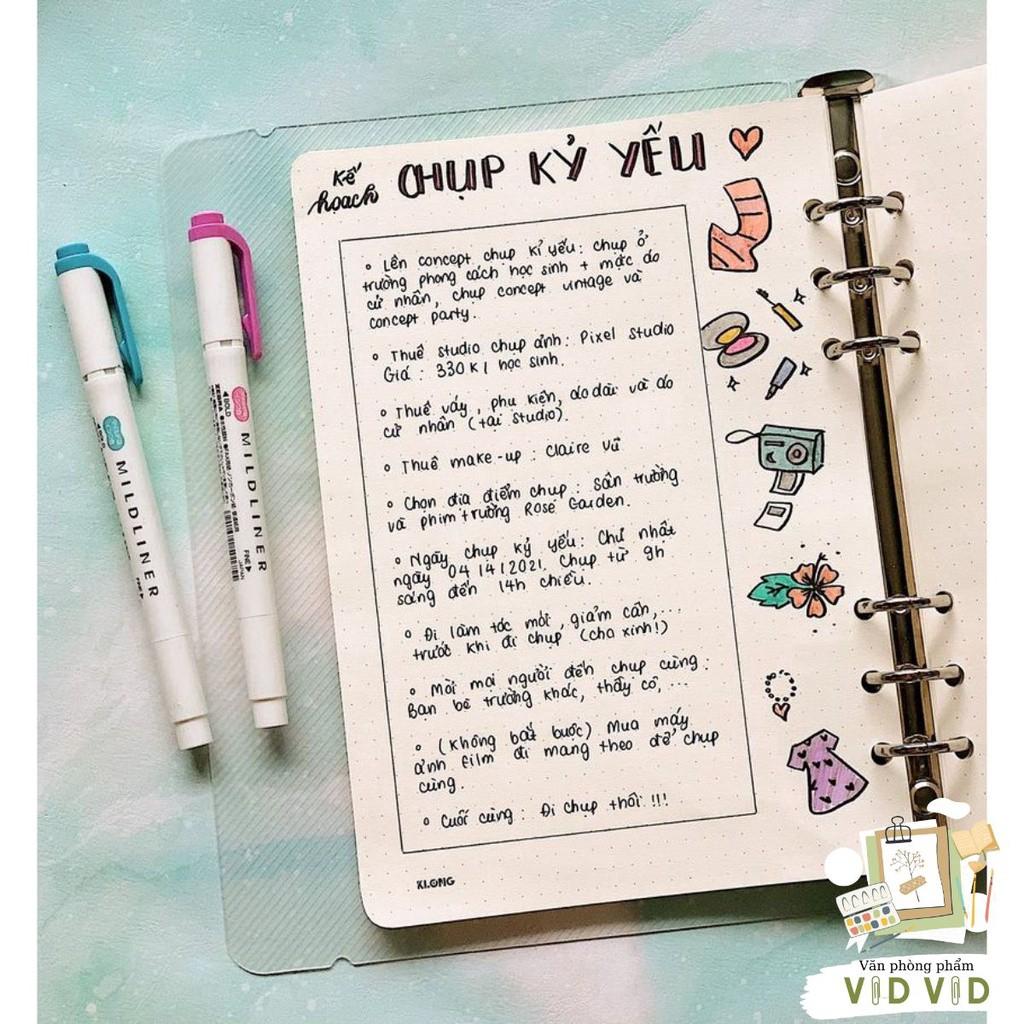 Kế hoạch
CHỤP KỶ YẾU
• Lên concept chụp kỉ yếu: chụp ở
trường phong cách học sinh + mặc áo
cử nhân, chụp concept vintage và
concept party.
• Thuê studio chụp ảnh: Pixel Studio
Giá: 330K/học sinh.
• Thuê váy, phụ kiện, áo dài và áo
cử nhân (tại studio).
• Thuê make-up: Claire Vũ
• Chọn địa điểm chụp: Sân trường
và phim trường Rose Garden.
• Ngày chụp kỷ yếu: Chủ nhật
ngày 04/4/2021. Chụp từ 9h
sáng đến 14h chiều.
• Đi làm tóc mới, giảm cân,...
trước khi đi chụp (cho xinh!)
• Mời mọi người đến chụp cùng:
Bạn bè trường khác, thầy cô,...
• (Không bắt buộc) Mua máy
ảnh film đi mang theo để chụp
cùng.
• Cuối cùng: Đi chụp thôi!!!
KLONG
MILDLINER
MILDLINER
ZEBRA
BOLD
FINE
JAPAN
Văn phòng phẩm
VID VID